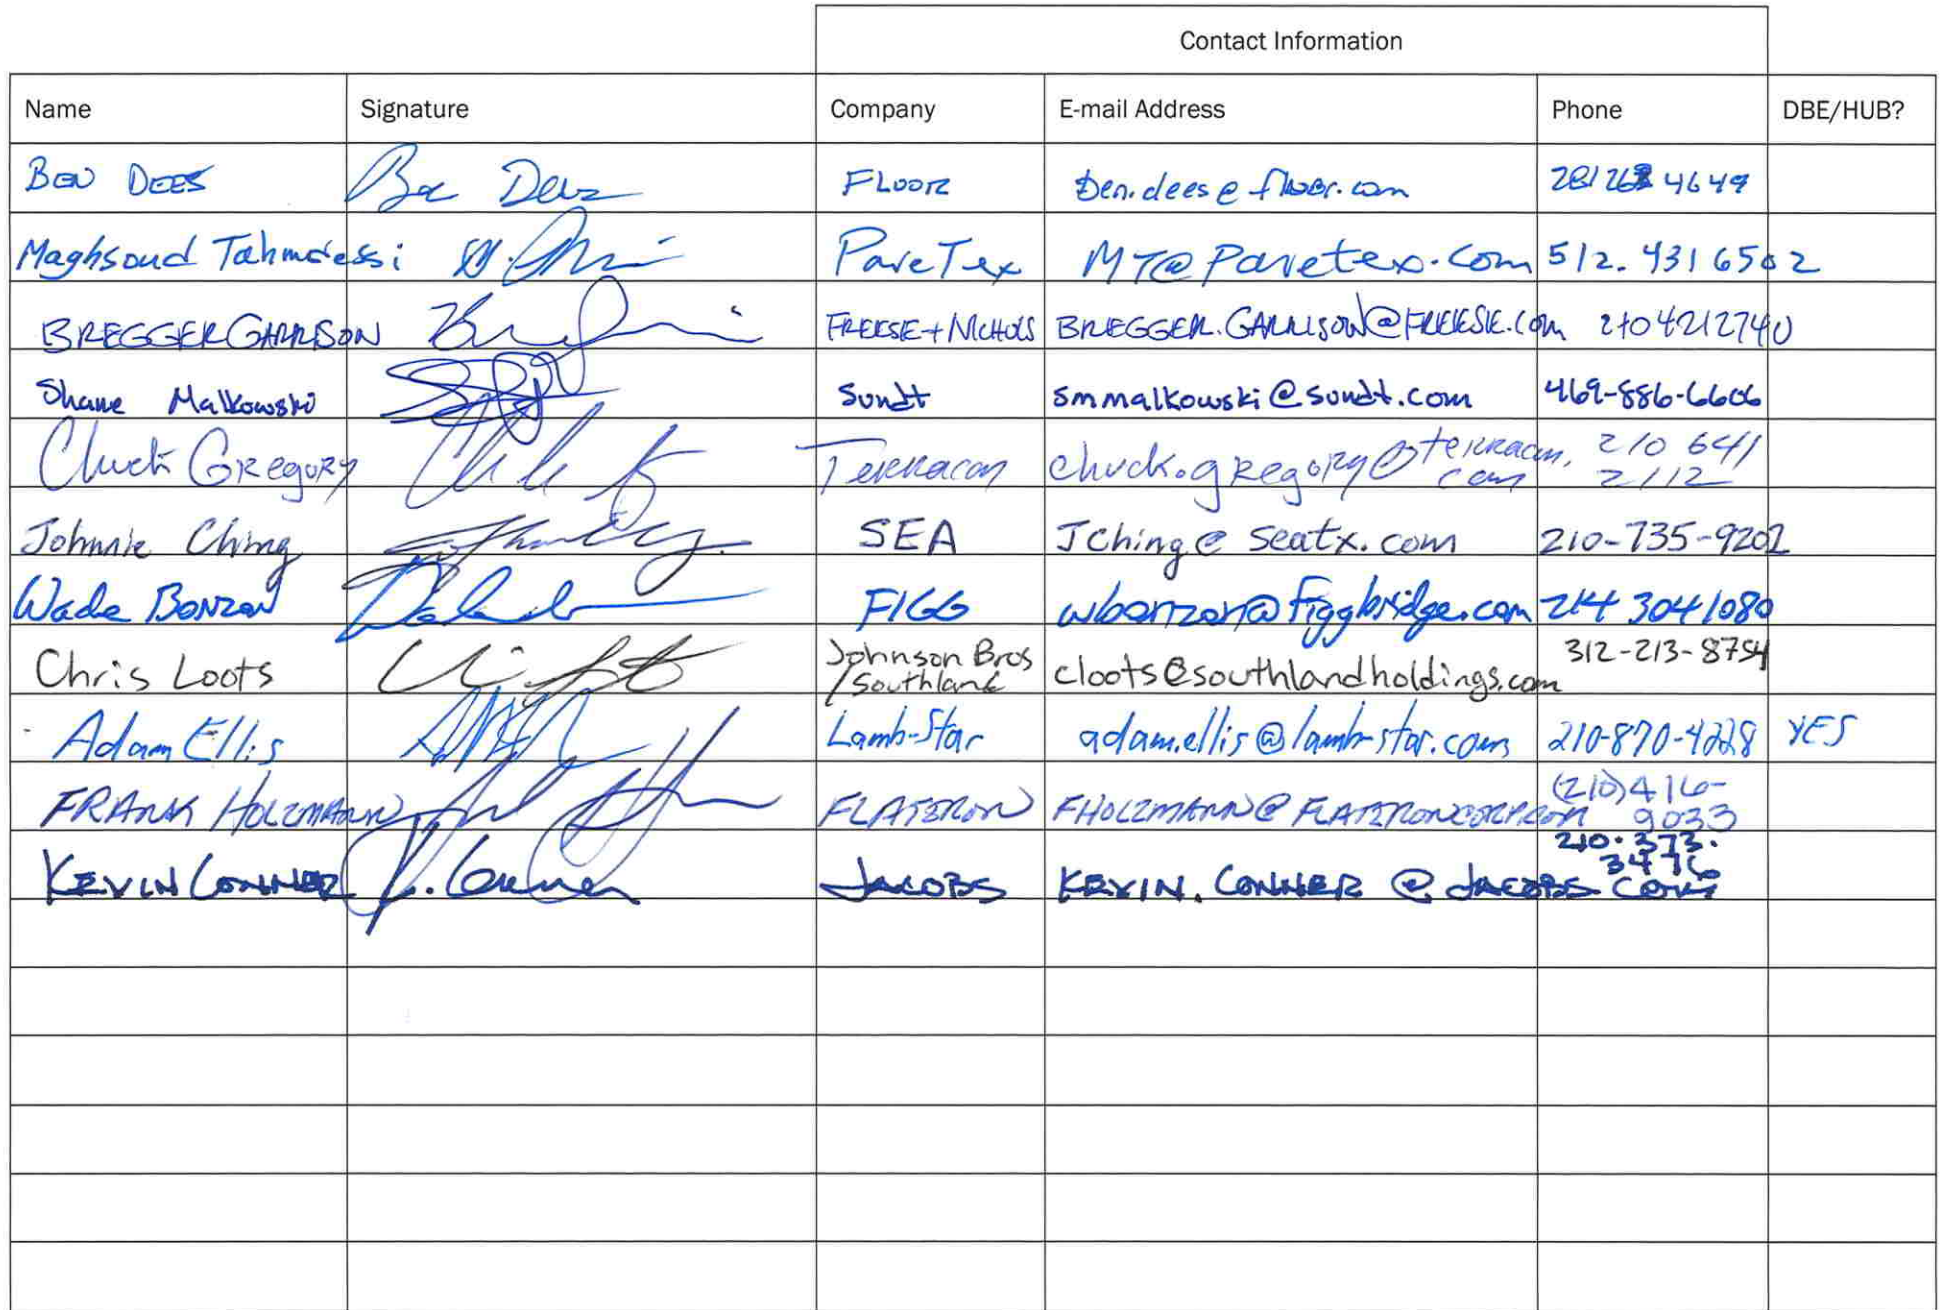 Contact Information
Name Signature Company E-mail Address Phone DBE/HUB?
BEN DEES Ben Dees FLUOR ben.dees@fluor.com 4649
Maghsoud Tahmoressi PaveTex MT@Pavetex.com 512.4316502
BREGGER GARRISON FREESE + NICHOLS BREGGER.GARRISON@FREESE.COM 2104212740
Shane Malkowski Sundt smmalkowski@sundt.com 469-886-6606
Chuck GREgoRy TERRacon chuck.gREgoRy@teRRacon. 210 641
com 2112
Johnnie Ching SEA JChing@seatx.com 210-735-9202
Wade BONZON FIGG wbonzon@figgbridge.com 214 304 1080
Chris Loots Johnson Bros cloots@southlandholdings.com 312-213-8754
/Southland
Adam Ellis Lamb-Star adam.ellis@lamb-star.com 210-870-4228 YES
FRANK HOLZMANN FLATIRON FHOLZMANN@FLATIRONCORP.COM (210)416-
9033
KEVIN CONNER K. Conner JACOBS KEVIN.CONNER@JACOBS.COM 210.373.
3476